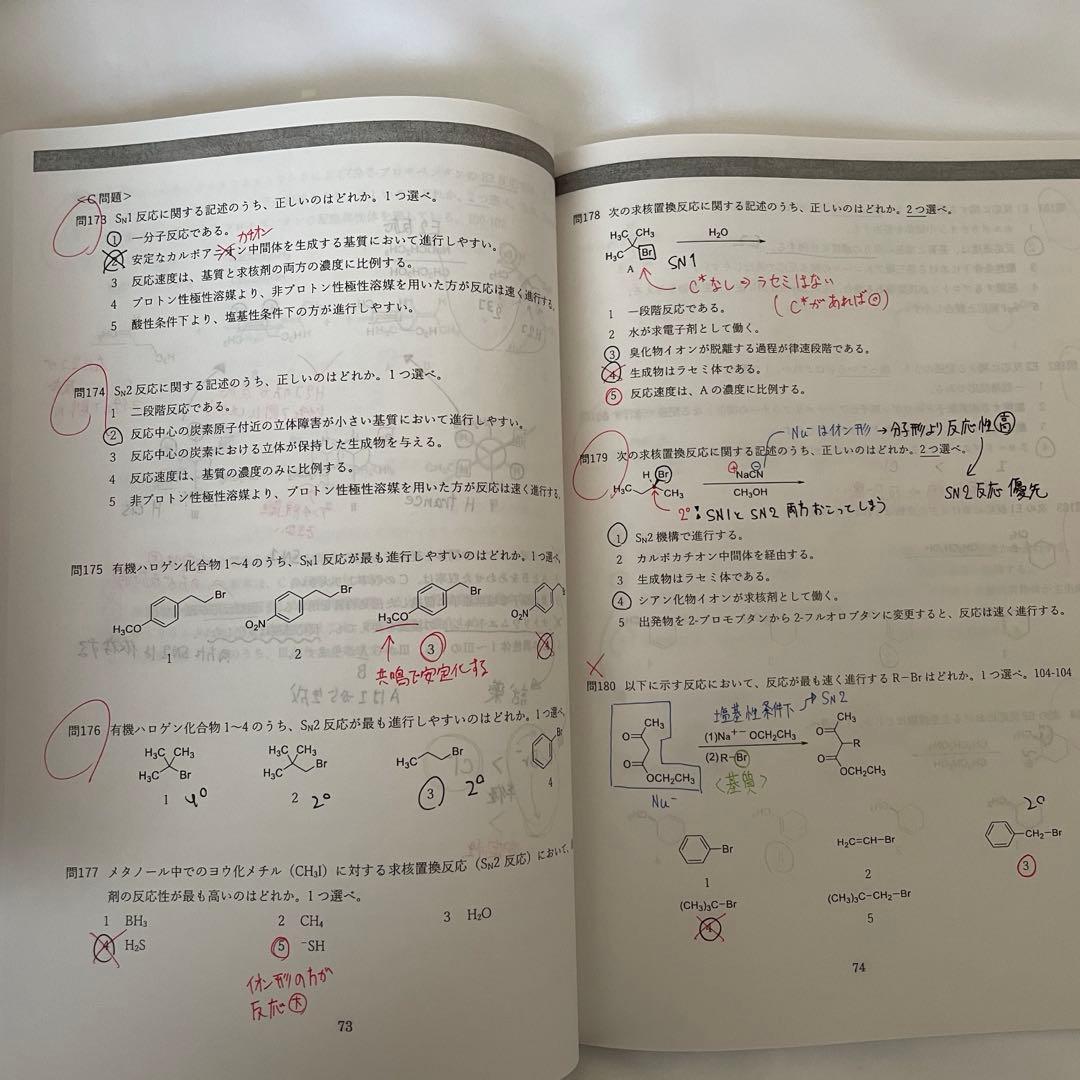 <C問題>
問173 SN1反応に関する記述のうち、正しいのはどれか。1つ選べ。
1 一分子反応である。
カチオン
2 安定なカルボアニオン中間体を生成する基質において進行しやすい。
3 反応速度は、基質と求核剤の両方の濃度に比例する。
4 プロトン性極性溶媒より、非プロトン性極性溶媒を用いた方が反応は速く進行する。
5 酸性条件下より、塩基性条件下の方が進行しやすい。
問174 SN2反応に関する記述のうち、正しいのはどれか。1つ選べ。
1 二段階反応である。
2 反応中心の炭素原子付近の立体障害が小さい基質において進行しやすい。
3 反応中心の炭素における立体が保持した生成物を与える。
4 反応速度は、基質の濃度のみに比例する。
5 非プロトン性極性溶媒より、プロトン性極性溶媒を用いた方が反応は速く進行する。
問175 有機ハロゲン化合物1~4のうち、SN1反応が最も進行しやすいのはどれか。1つ選べ
Br Br Br
H3CO O2N H3CO O2N
1 2 3 4
共鳴で安定化する
問176 有機ハロゲン化合物1~4のうち、SN2反応が最も進行しやすいのはどれか。1つ選べ
H3C CH3 H3C CH3 Br Br
H3C Br H3C Br H3C
1 4° 2 2° 3 2° 4
問177 メタノール中でのヨウ化メチル(CH3I)に対する求核置換反応(SN2反応)において、
剤の反応性が最も高いのはどれか。1つ選べ。
1 BH3 2 CH4 3 H2O
4 H2S 5 ⁻SH
イオン形の方が
反応大
73
問178 次の求核置換反応に関する記述のうち、正しいのはどれか。2つ選べ。
H3C CH3 H2O
H3C Br SN1
A
C*なし⇒ラセミはない
(C*があれば○)
1 一段階反応である。
2 水が求電子剤として働く。
3 臭化物イオンが脱離する過程が律速段階である。
4 生成物はラセミ体である。
5 反応速度は、Aの濃度に比例する。
Nu⁻はイオン形→分子形より反応性高
問179 次の求核置換反応に関する記述のうち、正しいのはどれか。2つ選べ。
H Br ⊕ ⊖ NaCN
H3C CH3 CH3OH
SN2反応優先
2°:SN1とSN2両方おこってしまう
1 SN2機構で進行する。
2 カルボカチオン中間体を経由する。
3 生成物はラセミ体である。
4 シアン化物イオンが求核剤として働く。
5 出発物を2-ブロモブタンから2-フルオロブタンに変更すると、反応は速く進行する。
問180 以下に示す反応において、反応が最も速く進行するR-Brはどれか。1つ選べ。104-104
塩基性条件下 → SN2
CH3 (1)Na⁺⁻OCH2CH3 CH3
O (2)R-Br O R
O OCH2CH3 〈基質〉 O OCH2CH3
Nu⁻
2°
Br H2C=CH-Br CH2-Br
1 2 3
(CH3)3C-Br (CH3)3C-CH2-Br
4 5
74